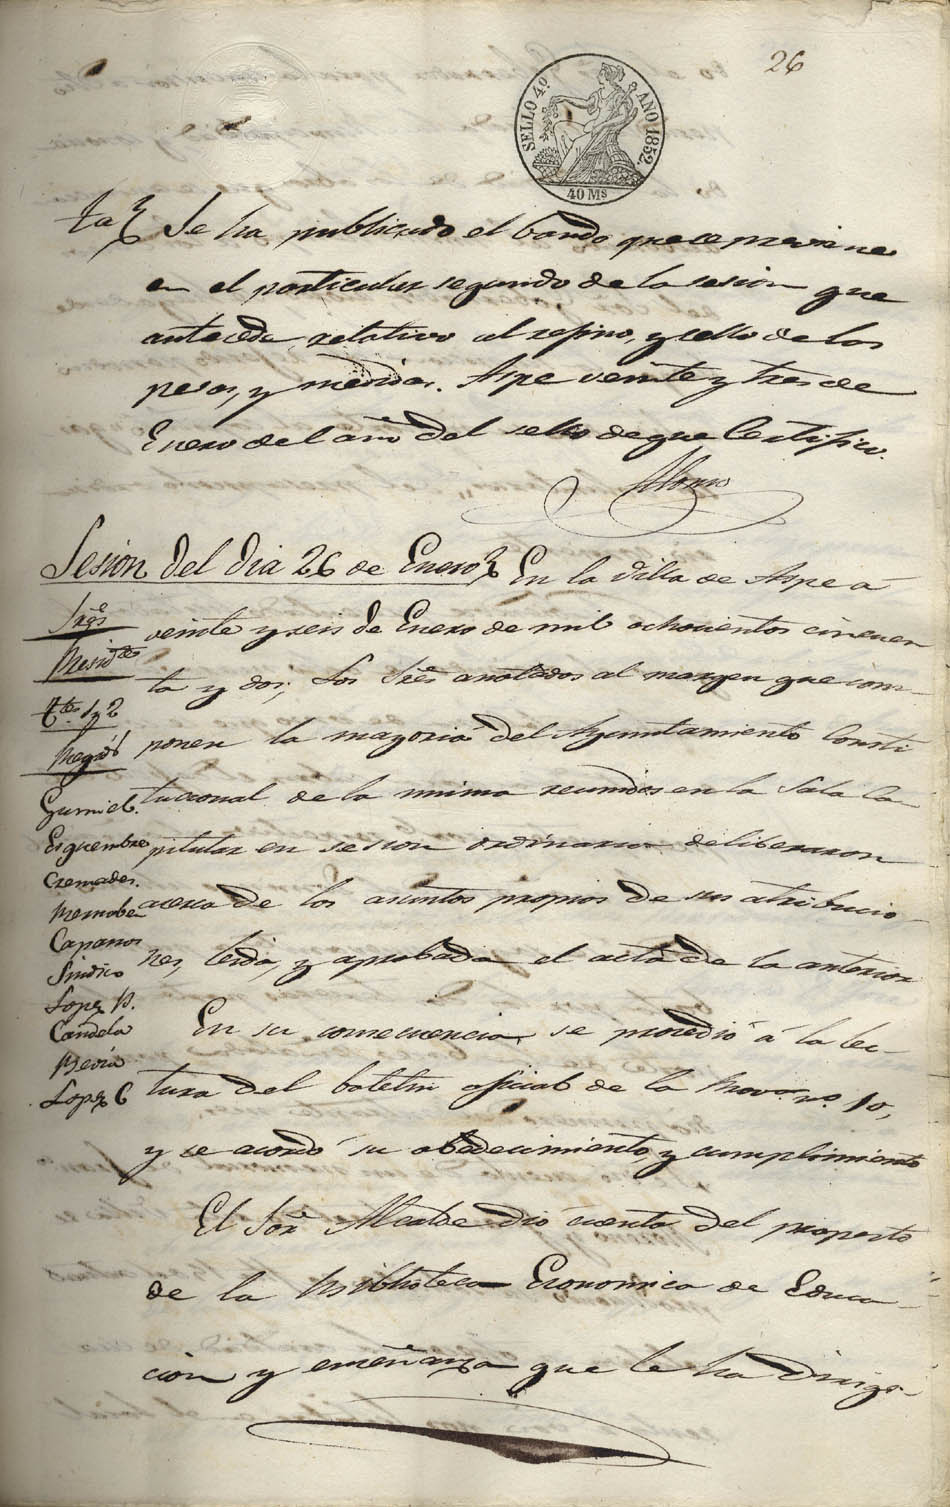 26
SELLO 4º AÑO 1852.
40 Ms
Se ha publicado el bando que se previene
en el particular segundo de la sesion que
antecede relativo al refino, y sello de las
pesas, y medidas. Aspe veinte y tres de
Enero del año del sello de que Certifico.
Alonso
Sesion del dia 26 de Enero En la Villa de Aspe á
veinte y seis de Enero de mil ochocientos cincuen
ta y dos; Los Sres anotados al margen que com-
ponen la mayoria del Ayuntamiento Consti
tucional de la misma reunidos en la Sala Ca
pitular en sesion ordinaria deliberaron
acerca de los asuntos propios de sus atribucio-
nes, leida, y aprobada el acta de la anterior
Sres
Presidte
Ttes 1 y 2
Regids
Gumiel.
Esquembre
Cremades.
Mernabeu
Caparros
Sindico
Lopez P.
Candela
Bevia
Lopez C
En su consecuencia, se procedió á la lec-
tura del boletin oficial de la Prova. no. 10,
y se acordó su obedecimiento y cumplimiento
El Sor Alcalde dió cuenta del prospecto
de la Biblioteca Economica de Educa-
cion y enseñanza que le ha dirigi-